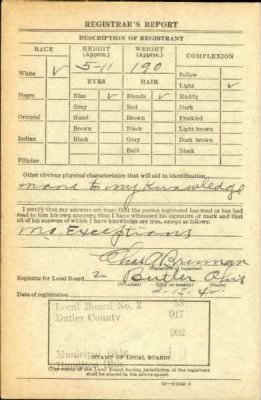 REGISTRAR'S REPORT
DESCRIPTION OF REGISTRANT
RACE HEIGHT (Approx.) WEIGHT (Approx.) COMPLEXION
5-11 190
White ✓ Sallow
EYES HAIR Light ✓
Negro Blue ✓ Blonde ✓ Ruddy
Gray Red Dark
Oriental Hazel Brown Freckled
Brown Black Light brown
Indian Black Gray Dark brown
Bald Black
Filipino
Other obvious physical characteristics that will aid in identification
none to my knowledge
I certify that my answers are true; that the person registered has read or has had
read to him his own answers; that I have witnessed his signature or mark and that
all of his answers of which I have knowledge are true, except as follows:
no Exceptions
Chas A Brennan
(Signature of registrar)
Registrar for Local Board 2 Butler Ohio
Date of registration
Local Board No. 2
Butler County 017
002
(STAMP OF LOCAL BOARD)
(The stamp of the Local Board having jurisdiction of the registrant
shall be placed in the above space)